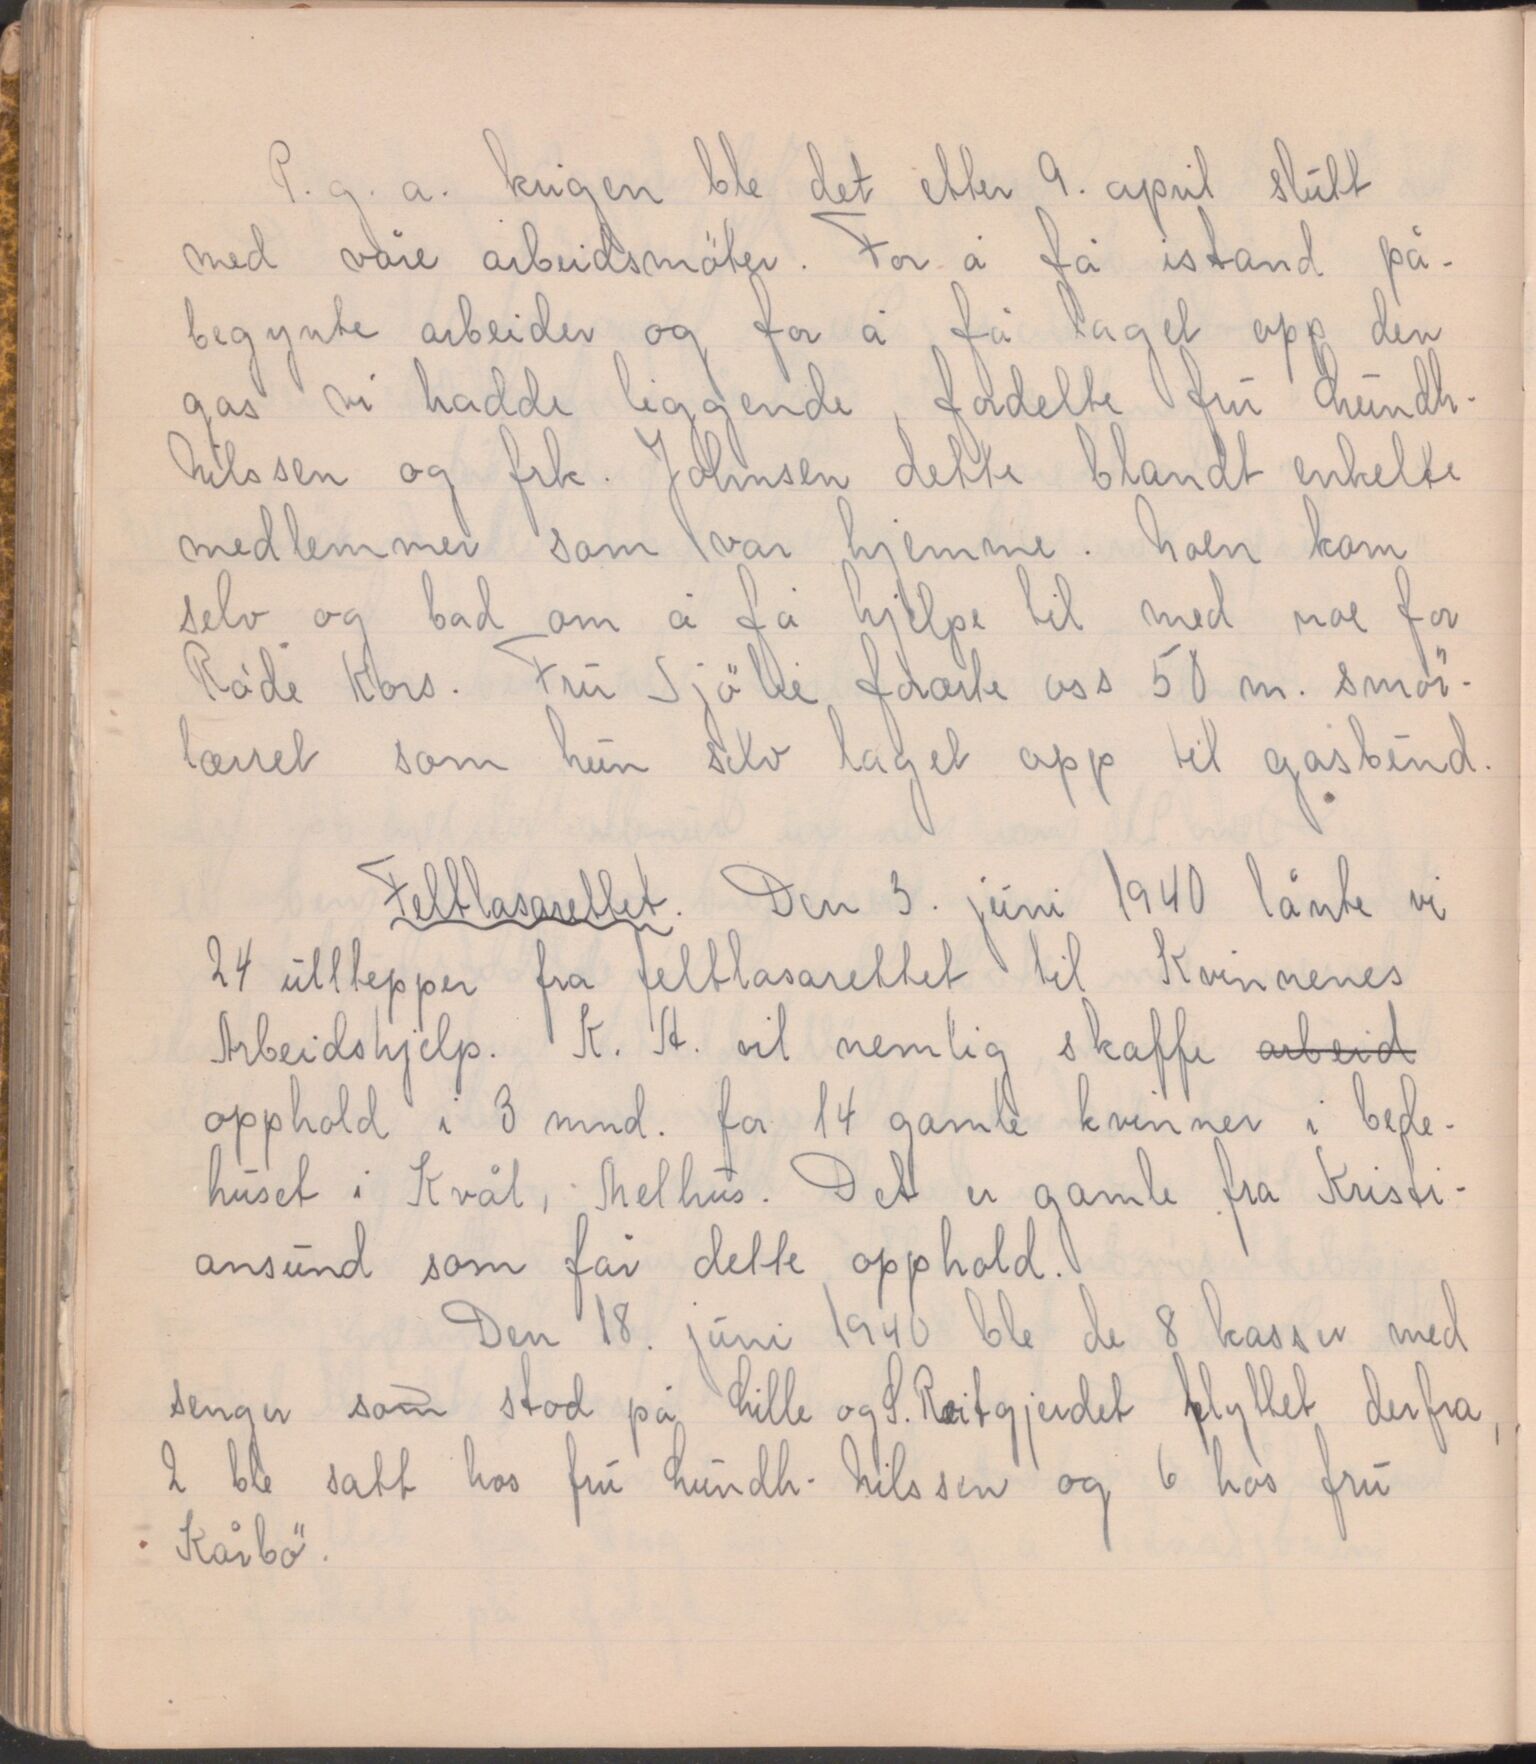 P.g.a. krigen ble det etter 9. april slutt
med våre arbeidsmöter. For å få istand på-
begynte arbeider og for å få laget opp den
gas vi hadde liggende, fordelte fru Lundh-
Nilssen og frk. Johnsen dette blandt enkelte
medlemmer som var hjemme. Noen kom
selv og bad om å få hjelpe til med noe for
Röde Kors. Fru Sjölie forærte oss 50 m. smör-
lærret som hun selv laget opp til gasbind.
Feltlasarettet. Den 3. juni 1940 lånte vi
24 ulltepper fra feltlasarettet til Kvinnenes
Arbeidshjelp. K. A. vil nemlig skaffe ~~arbeid~~
opphold i 3 mnd. for 14 gamle kvinner i bede-
huset i Kvål, Melhus. Det er gamle fra Kristi-
ansund som får dette opphold.
Den 18. juni 1940 ble de 8 kasser med
senger som stod på Lille og S. Reitgjerdet flyttet derfra,
2 ble satt hos fru Lundh-Nilssen og 6 hos fru
Kårbö.